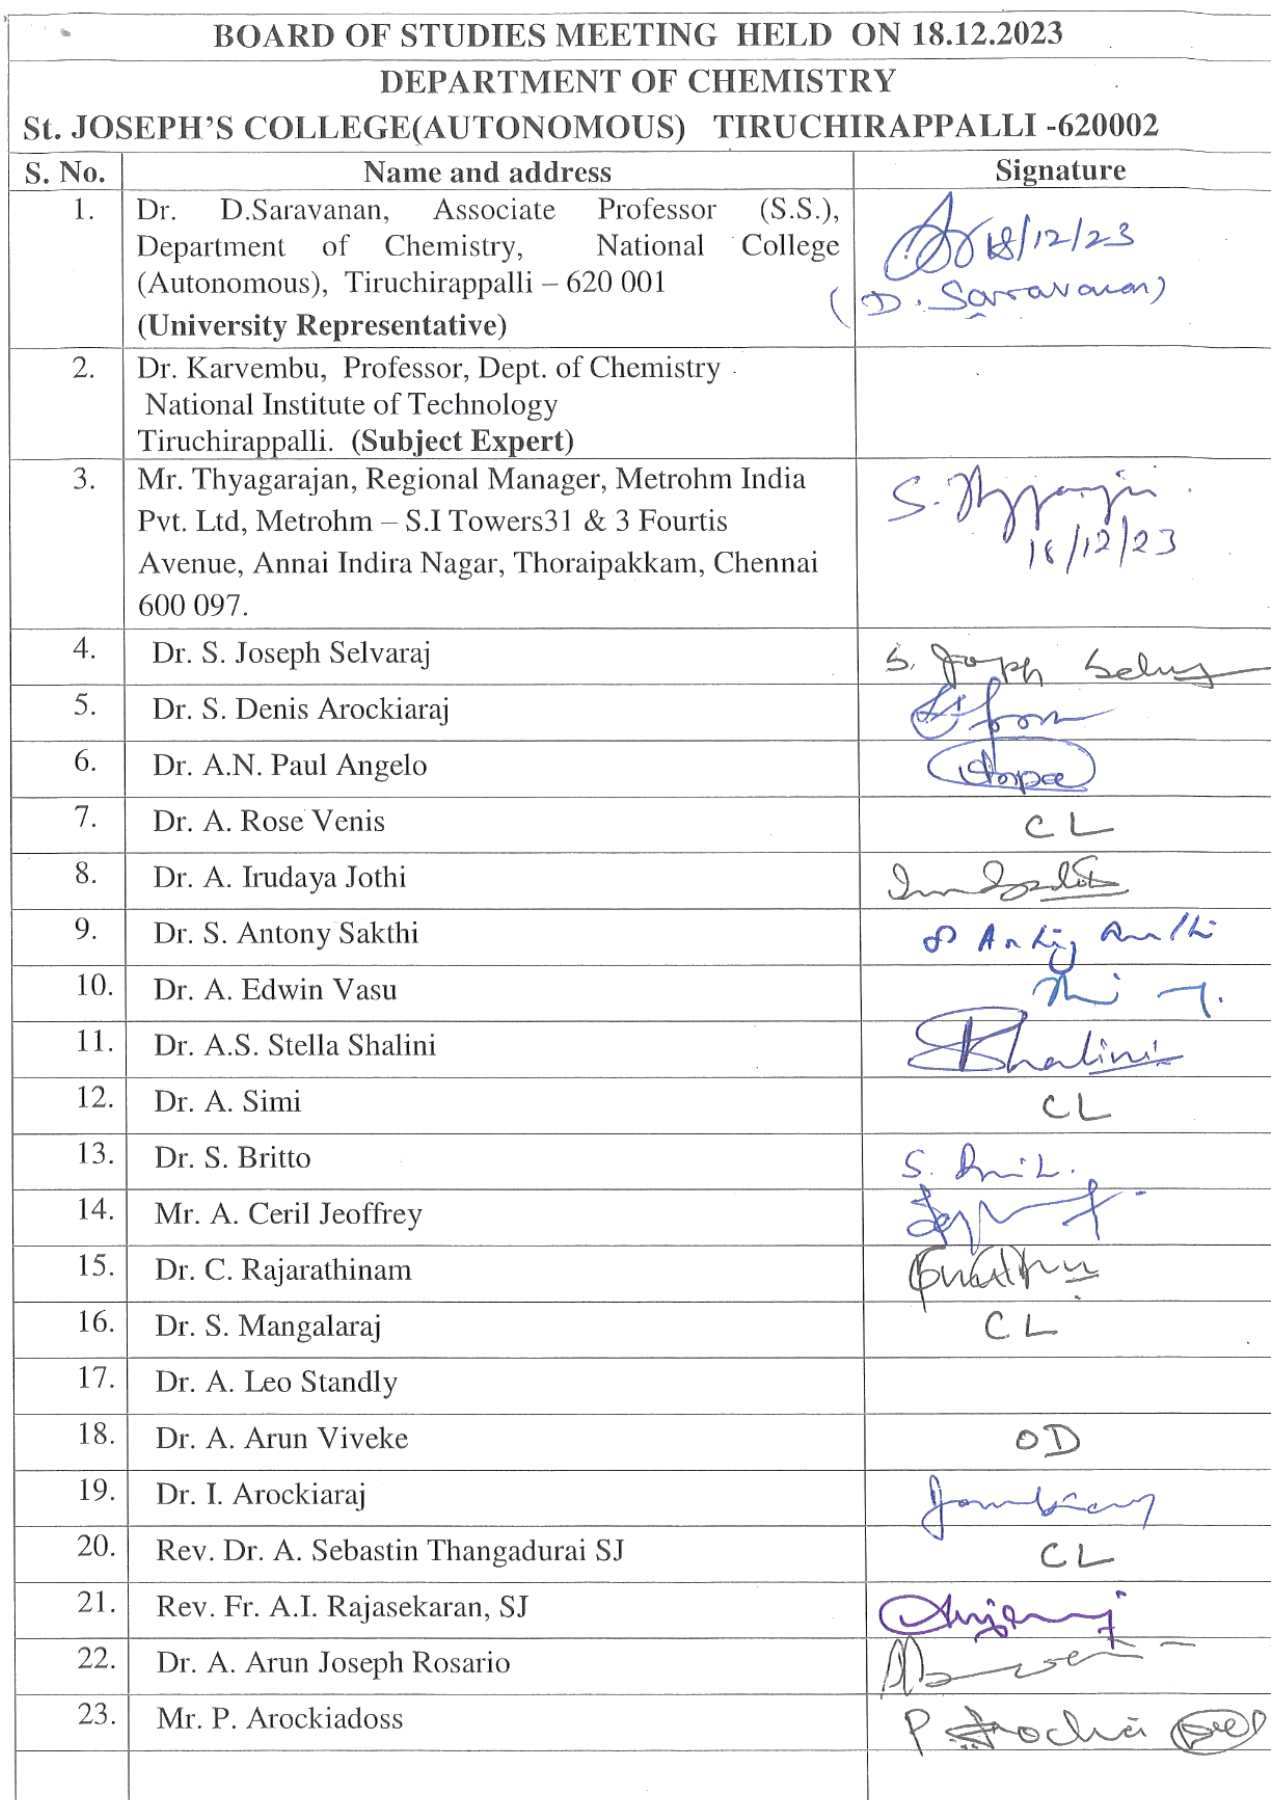 BOARD OF STUDIES MEETING HELD ON 18.12.2023
DEPARTMENT OF CHEMISTRY
St. JOSEPH'S COLLEGE(AUTONOMOUS) TIRUCHIRAPPALLI -620002
S. No. Name and address Signature
1. Dr. D.Saravanan, Associate Professor (S.S.),
Department of Chemistry, National College 18/12/23
(Autonomous), Tiruchirappalli – 620 001 (D. Saravanan)
(University Representative)
2. Dr. Karvembu, Professor, Dept. of Chemistry
National Institute of Technology
Tiruchirappalli. (Subject Expert)
3. Mr. Thyagarajan, Regional Manager, Metrohm India
Pvt. Ltd, Metrohm – S.I Towers31 & 3 Fourtis
Avenue, Annai Indira Nagar, Thoraipakkam, Chennai 18/12/23
600 097.
4. Dr. S. Joseph Selvaraj S. Joseph
5. Dr. S. Denis Arockiaraj
6. Dr. A.N. Paul Angelo
7. Dr. A. Rose Venis CL
8. Dr. A. Irudaya Jothi
9. Dr. S. Antony Sakthi
10. Dr. A. Edwin Vasu
11. Dr. A.S. Stella Shalini Shalini
12. Dr. A. Simi CL
13. Dr. S. Britto
14. Mr. A. Ceril Jeoffrey
15. Dr. C. Rajarathinam
16. Dr. S. Mangalaraj CL
17. Dr. A. Leo Standly
18. Dr. A. Arun Viveke OD
19. Dr. I. Arockiaraj
20. Rev. Dr. A. Sebastin Thangadurai SJ CL
21. Rev. Fr. A.I. Rajasekaran, SJ
22. Dr. A. Arun Joseph Rosario
23. Mr. P. Arockiadoss